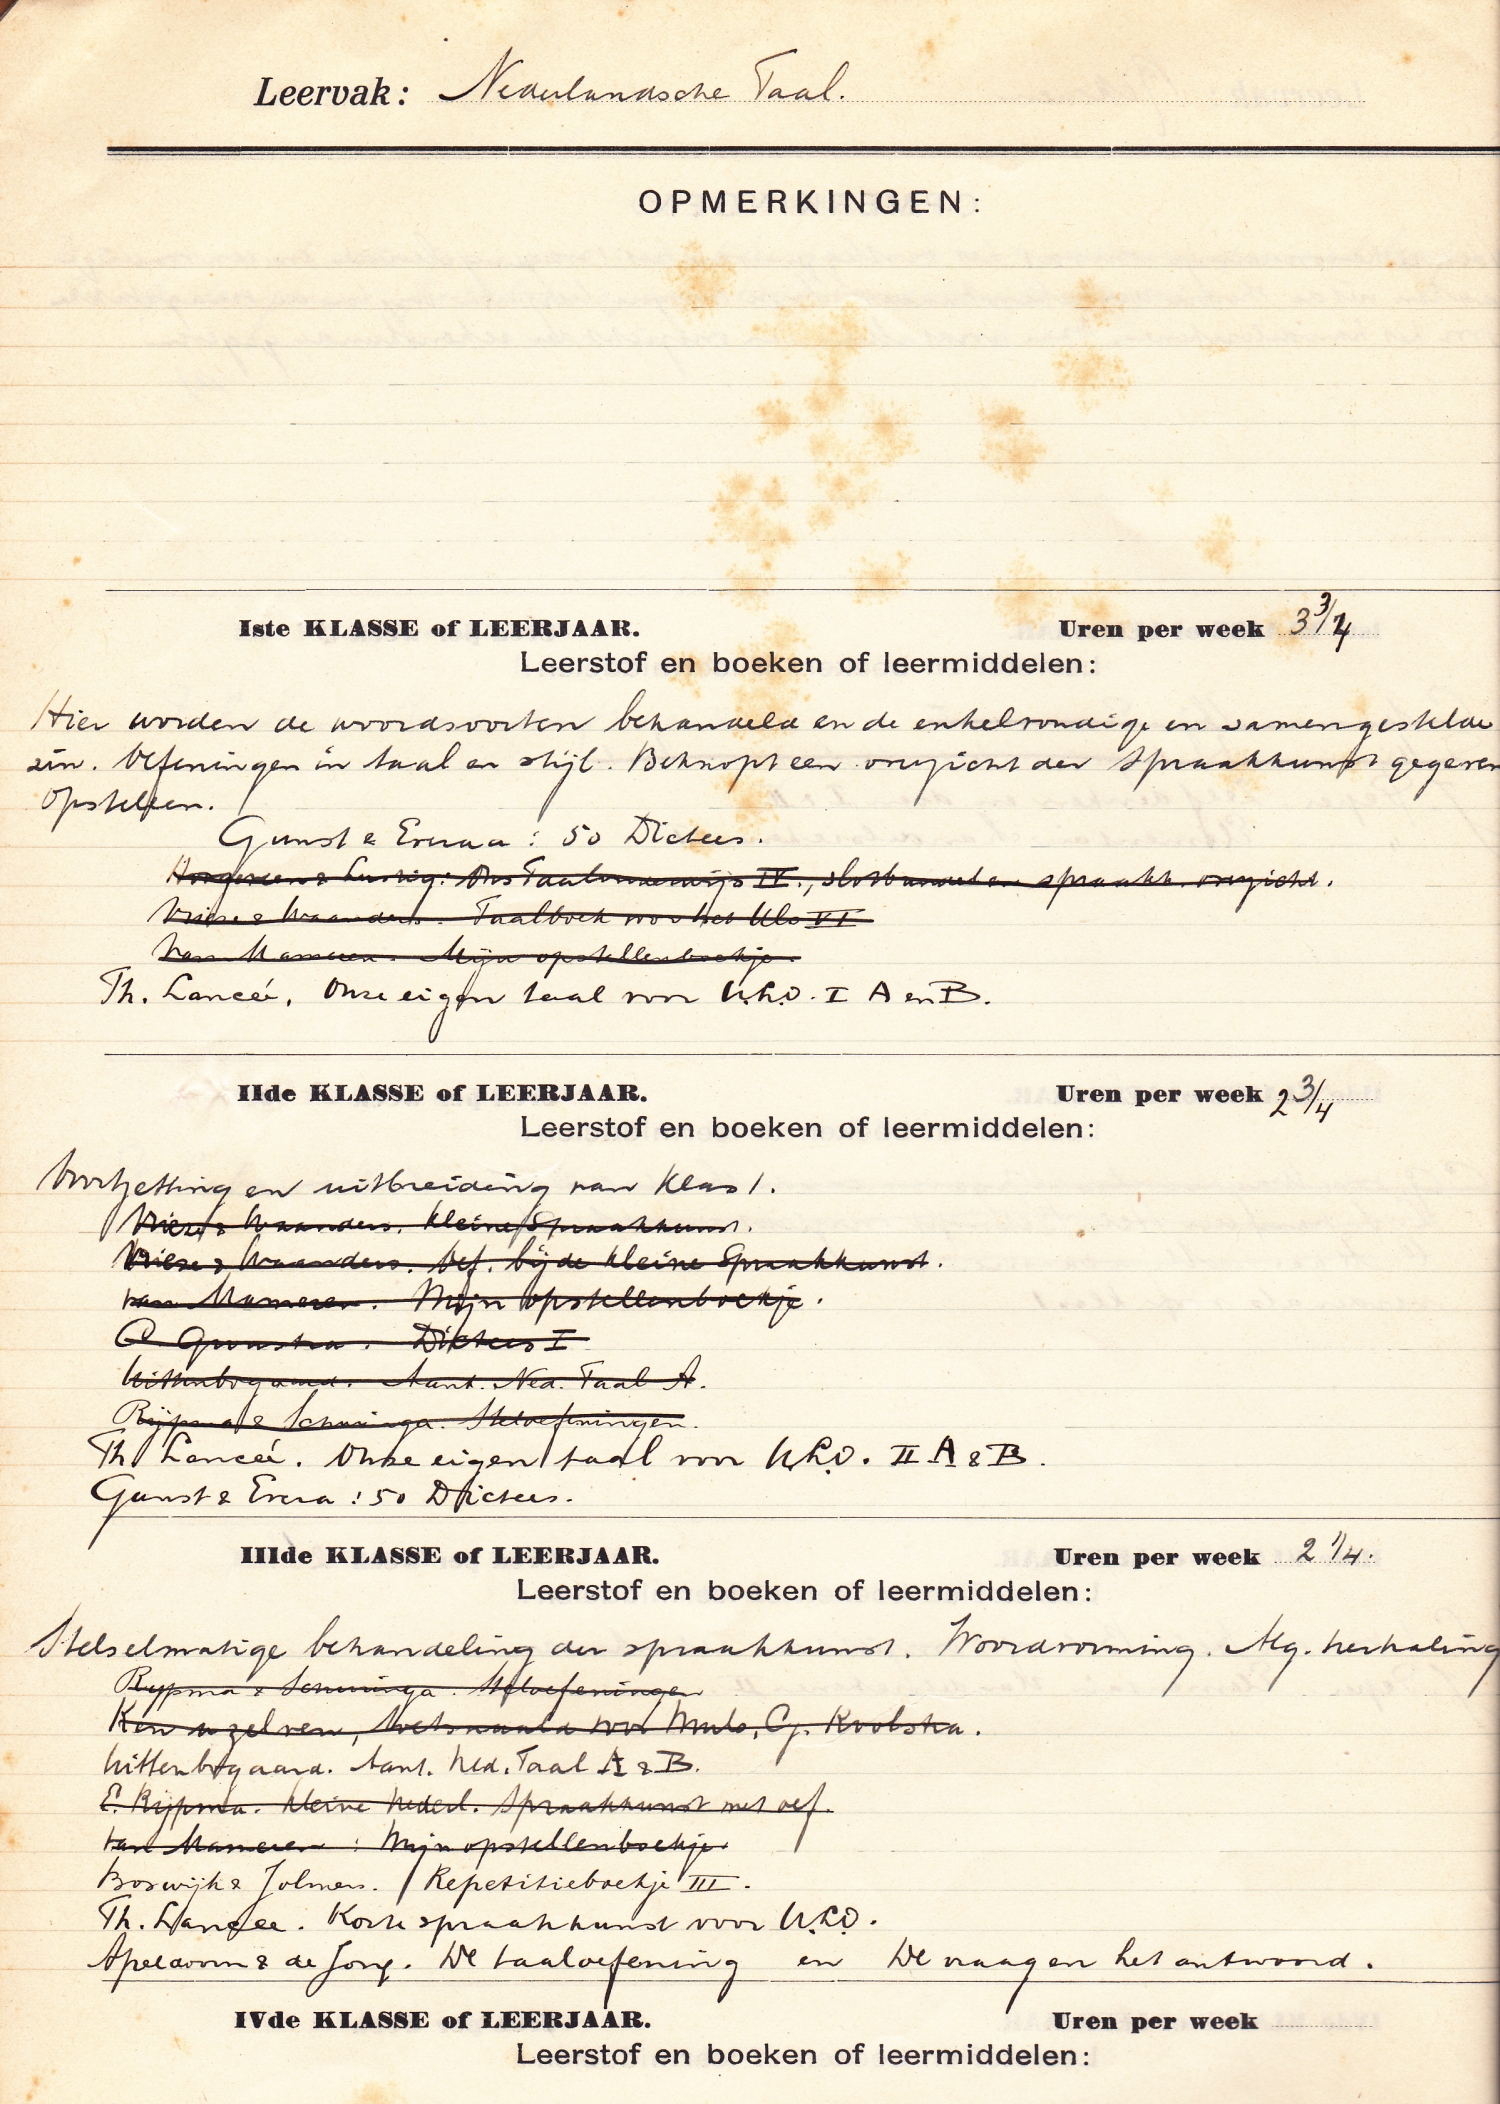 Leervak: Nederlandsche Taal.
OPMERKINGEN:
Iste KLASSE of LEERJAAR. Uren per week 3 3/4
Leerstof en boeken of leermiddelen:
Hier worden de woordsoorten behandeld en de enkelvoudige en samengestelde
zin. Oefeningen in taal en stijl. Beknopt een overzicht der spraakkunst gegeven
Opstellen.
Gunst & Evenaa: 50 Dictees.
Lustig: Ons Taalonderwijs IV., slotbundel en spraakk. overzicht.
Vriese & Waanders. Taalboek voor het Ulo VI
van Mameren. Mijn opstellenboekje.
Th. Lancée. Onze eigen taal voor U.L.O. I A en B.
IIde KLASSE of LEERJAAR. Uren per week 2 3/4
Leerstof en boeken of leermiddelen:
Voortzetting en uitbreiding van Klas 1.
Vriese & Waanders. Kleine Spraakkunst.
Vriese & Waanders. Oef. bij de kleine Spraakkunst.
van Mameren. Mijn opstellenboekje.
Dictees I
Uittenbogaard. Aant. Ned. Taal A.
Rijpma & Schuringa. Steloefeningen.
Th. Lancée. Onze eigen taal voor U.L.O. II A & B.
Gunst & Evera: 50 Dictees.
IIIde KLASSE of LEERJAAR. Uren per week 2 1/4.
Leerstof en boeken of leermiddelen:
Stelselmatige behandeling der spraakkunst. Woordvorming. Alg. herhaling
Rypma & Schuringa. Steloefeningen
Ken uzelven, voor Mulo,
Uittenbogaard. Aant. Ned. Taal A & B.
E. Rijpma. Kleine Nederl. Spraakkunst met oef.
van Mameren: Mijn opstellenboekje
Boswijk & Jolmers. Repetitieboekje III.
Th. Lancee. Korte spraakkunst voor U.L.O.
Apeldoorn & de Jong. De taaloefening en De vraag en het antwoord.
IVde KLASSE of LEERJAAR. Uren per week
Leerstof en boeken of leermiddelen: